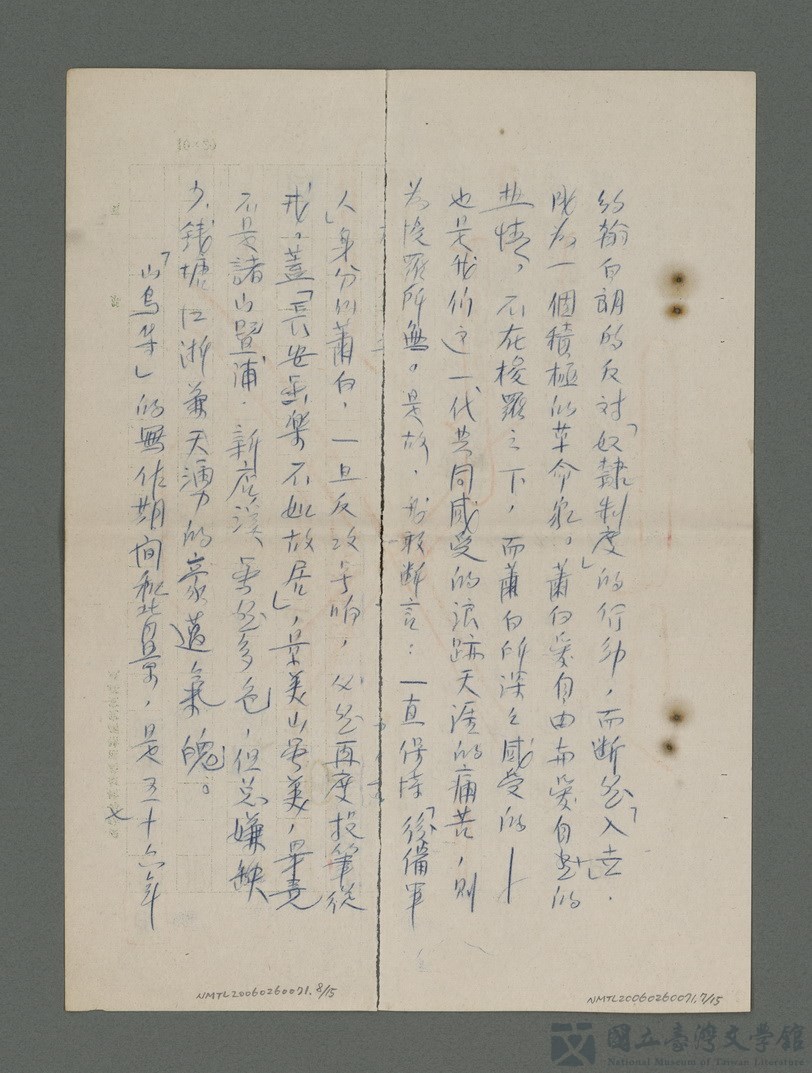 約翰白朗的反對「奴隸制度」的行動,而斷然「入世」.
成為一個積極的革命家。蕭白愛自由而愛自然的
热情,不在梭羅之下,而蕭白所深々感受的——
也是我們這一代共同感受的浪跡天涯的痛苦,則
为梭罗所無。是故,我敢斷言:一直保障「後備軍
人」身分的蕭白,一旦反攻号响,必然再度投筆從
戎。蓋「長安虽樂不如故居」,景美山虽美,畢竟
不是諸山暨浦.新店溪虽然多色,但总嫌缺
少錢塘江浙兼天湧的豪邁氣魄。
「山鳥华」的無佐期間和背景,是五十六年
NMTL20060260071.8/15
NMTL20060260071.7/15
國立臺灣文學館
National Museum of Taiwan Literature